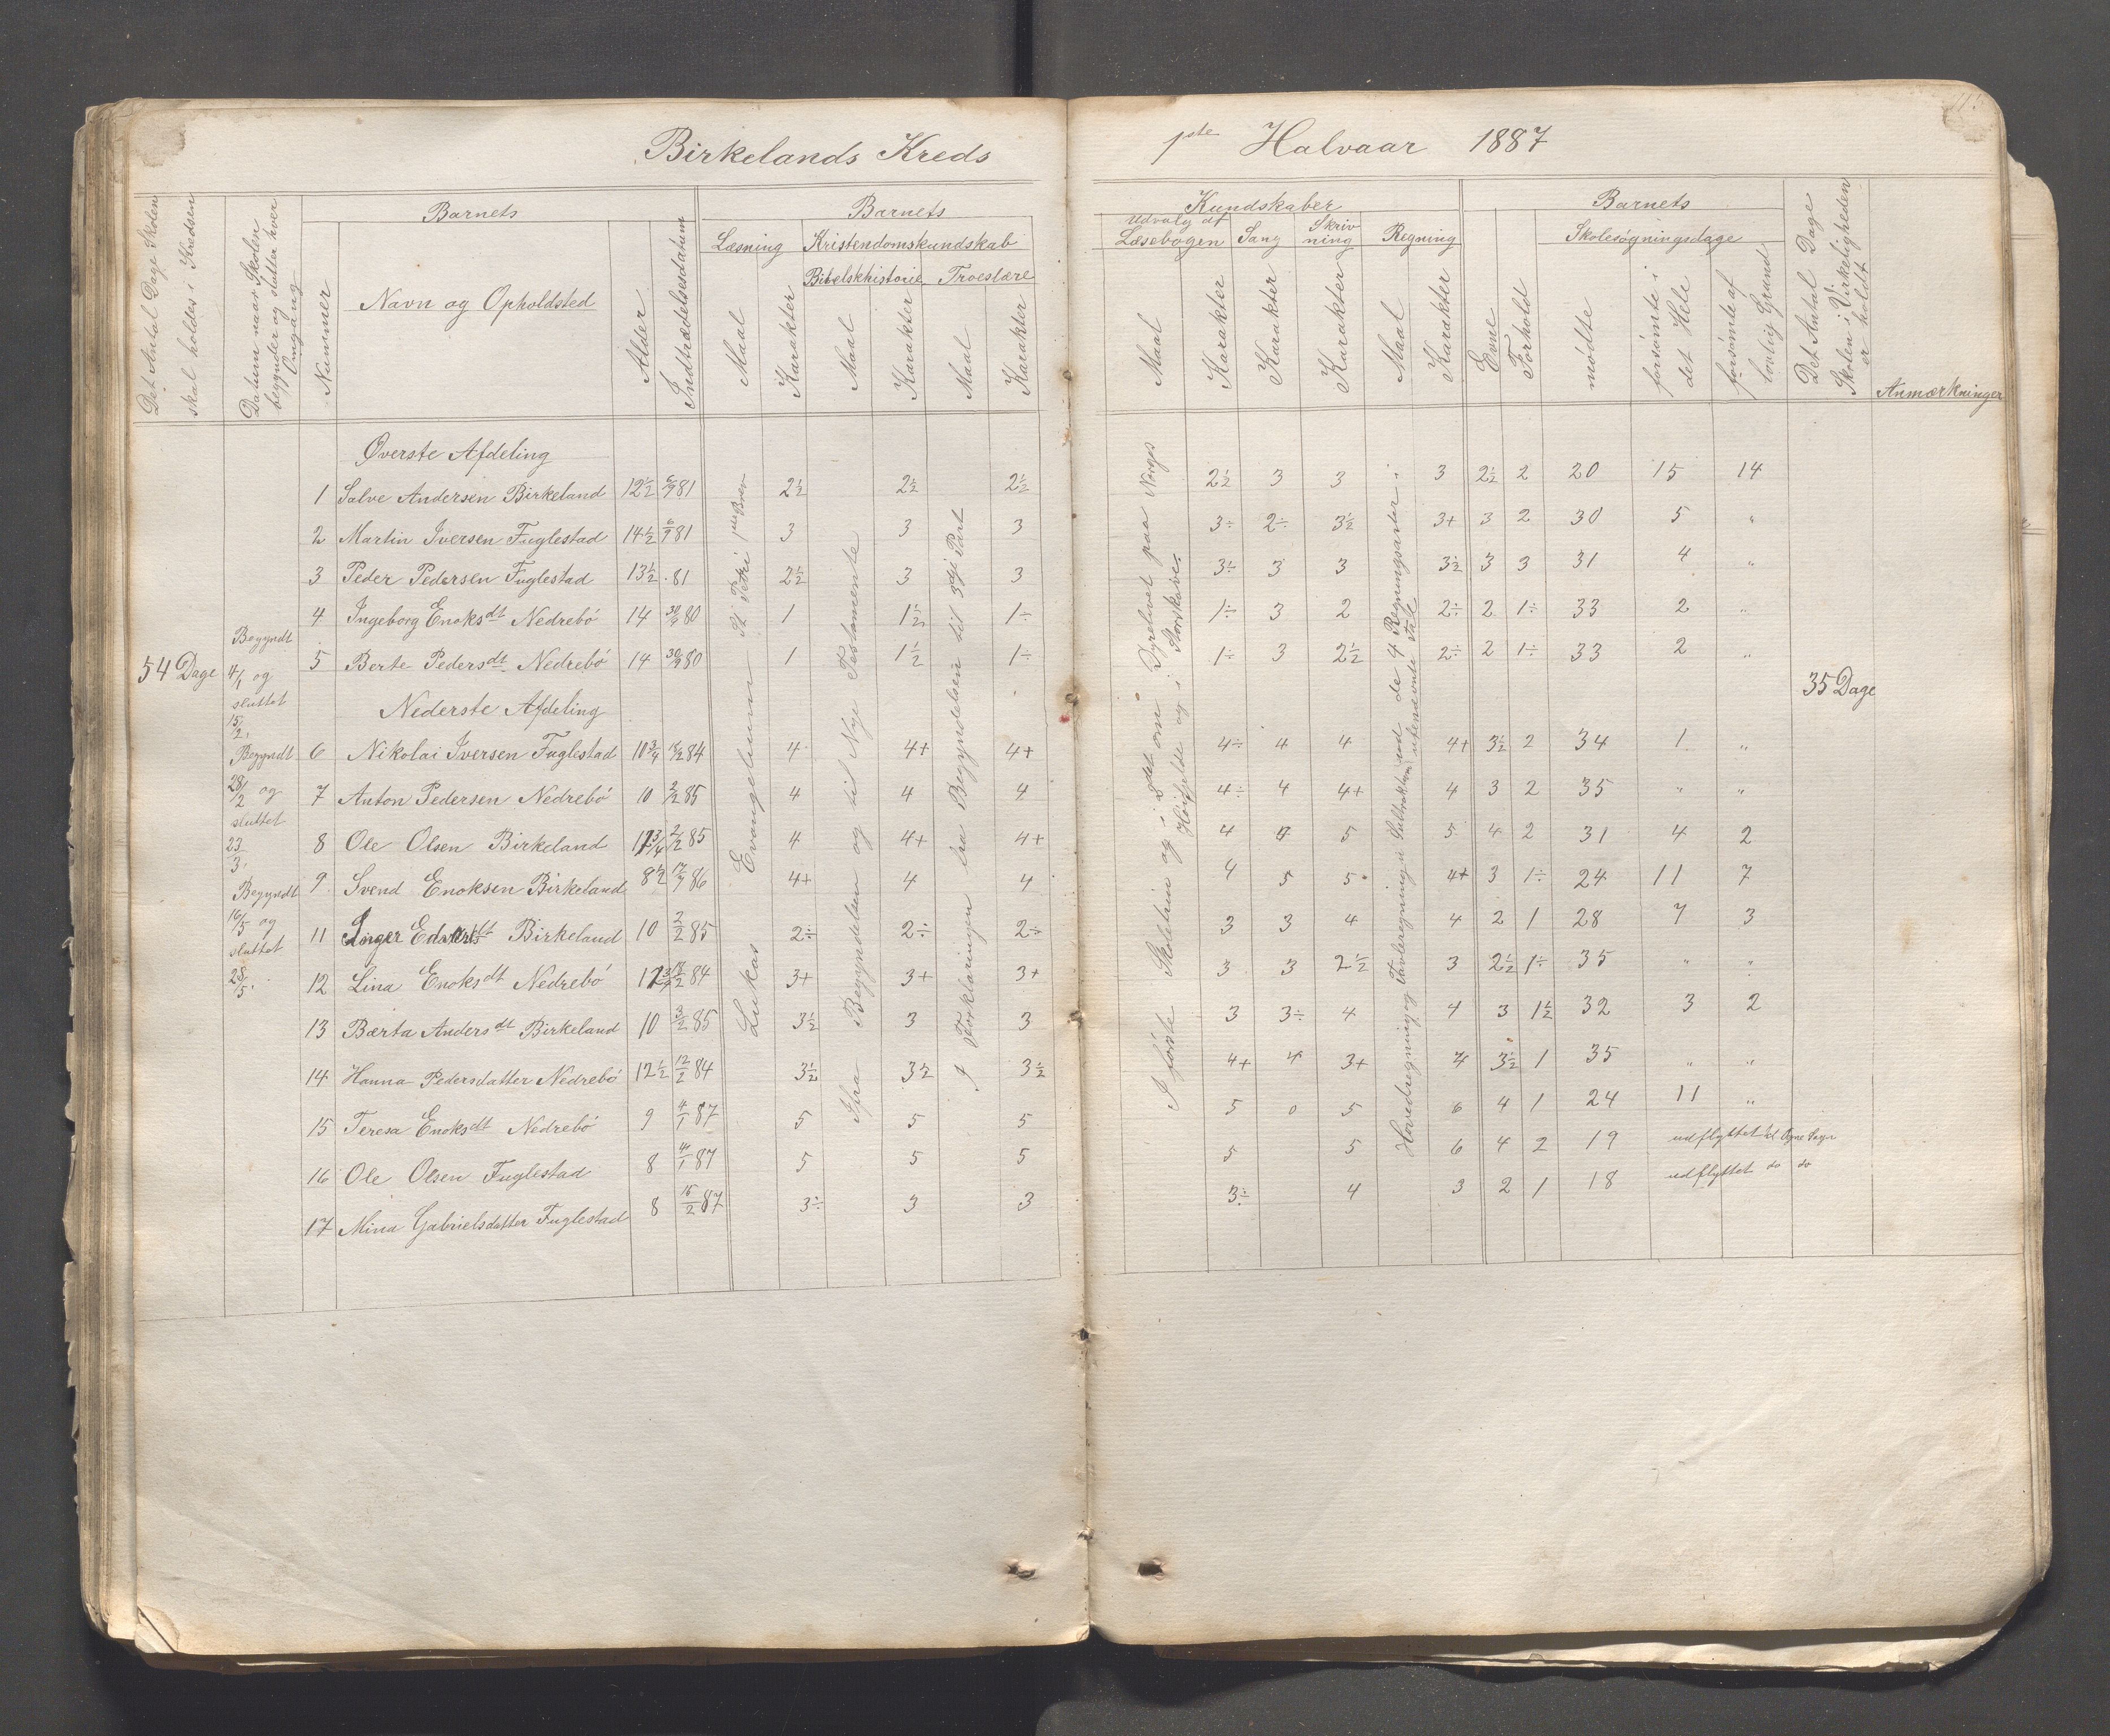 Birkelands Kreds
1ste Halvaar 1887
Det Antal Dage Skolen skal holdes i Kredsen
Datum naar Skolen begynder og slutter hver Omgang
Barnets
Nummer
Navn og Opholdsted
Alder
Indtrædelsesdatum
Barnets
Læsning
Kristendomskundskab
Bibelskhistorie
Troeslære
Maal
Karakter
Maal
Karakter
Maal
Karakter
Kundskaber
Udvalg af Læsebogen
Sang
Skrivning
Regning
Maal
Karakter
Karakter
Karakter
Maal
Karakter
Barnets
Evne
Forhold
Skolesøgningsdage
mødte
forsømte i det Hele
forsømte af lovlig Grund
Det Antal Dage Skolen i Virkeligheden er holdt
Anmærkninger
54 Dage
Begyndt
4/1 og
sluttet
15/2.
Begyndt
28/2 og
sluttet
23/3.
Begyndt
16/5 og
sluttet
28/5.
Lukas Evangelium St Petri 1ste Brev
Ifra Begyndelsen og til Nye Testamente
I Forklaringen fra Begyndelsen til 3dje Part
I første Skoletrin og i 3det om Dyrelivet paa Norges Høifjelde og i Storskove.
Hovedregning og Tavleregning i Subtraktion med de 4 Regningsarter i ubenævnte Tal
35 Dage
Øverste Afdeling
1 Salve Andersen Birkeland 12½ 6/9 81 2½ 2½ 2½ 2½ 3 3 3 2½ 2 20 15 14
2 Martin Iversen Fuglestad 14½ 6/9 81 3 3 3 3÷ 2÷ 3½ 3+ 3 2 30 5 "
3 Peder Pedersen Fuglestad 13½ . 81 2½ 3 3 3÷ 3 3 3½ 3 3 31 4 "
4 Ingeborg Enoksdt Nedrebø 14 30/9 80 1 1½ 1÷ 1÷ 3 2 2÷ 2 1÷ 33 2 "
5 Berte Pedersdt Nedrebø 14 30/9 80 1 1½ 1÷ 1÷ 3 2½ 2÷ 2 1÷ 33 2 "
Nederste Afdeling
6 Nikolai Iversen Fuglestad 10¾ 18/2 84 4 4+ 4+ 4÷ 4 4 4+ 3½ 2 34 1 "
7 Anton Pedersen Nedrebø 10 2/2 85 4 4 4 4÷ 4 4+ 4 3 2 35 " "
8 Ole Olsen Birkeland 11¾ 2/2 85 4 4+ 4+ 4 4 5 5 4 2 31 4 2
9 Svend Enoksen Birkeland 8½ 17/9 86 4+ 4 4 4 5 5 4+ 3 1÷ 24 11 7
11 Inger Edvartsdt Birkeland 10 2/2 85 2÷ 2÷ 2÷ 3 3 4 4 2 1 28 7 3
12 Lina Enoksdt Nedrebø 12/2 84 3+ 3+ 3+ 3 3 2½ 3 2½ 1÷ 35 " "
13 Bærta Andersdt Birkeland 10 3/2 85 3½ 3 3 3 3÷ 4 4 3 1½ 32 3 2
14 Hanna Pedersdatter Nedrebø 12½ 12/2 84 3½ 3½ 3½ 4+ 4 3+ 4 3½ 1 35 " "
15 Teresa Enoksdt Nedrebø 9 4/1 87 5 5 5 5 0 5 6 4 1 24 11 "
16 Ole Olsen Fuglestad 8 4/1 87 5 5 5 5 5 6 4 2 19 udflyttet til Ogne Sogn
17 Mina Gabrielsdatter Fuglestad 8 15/2 87 3÷ 3 3 3÷ 4 3 2 1 18 udflyttet do do